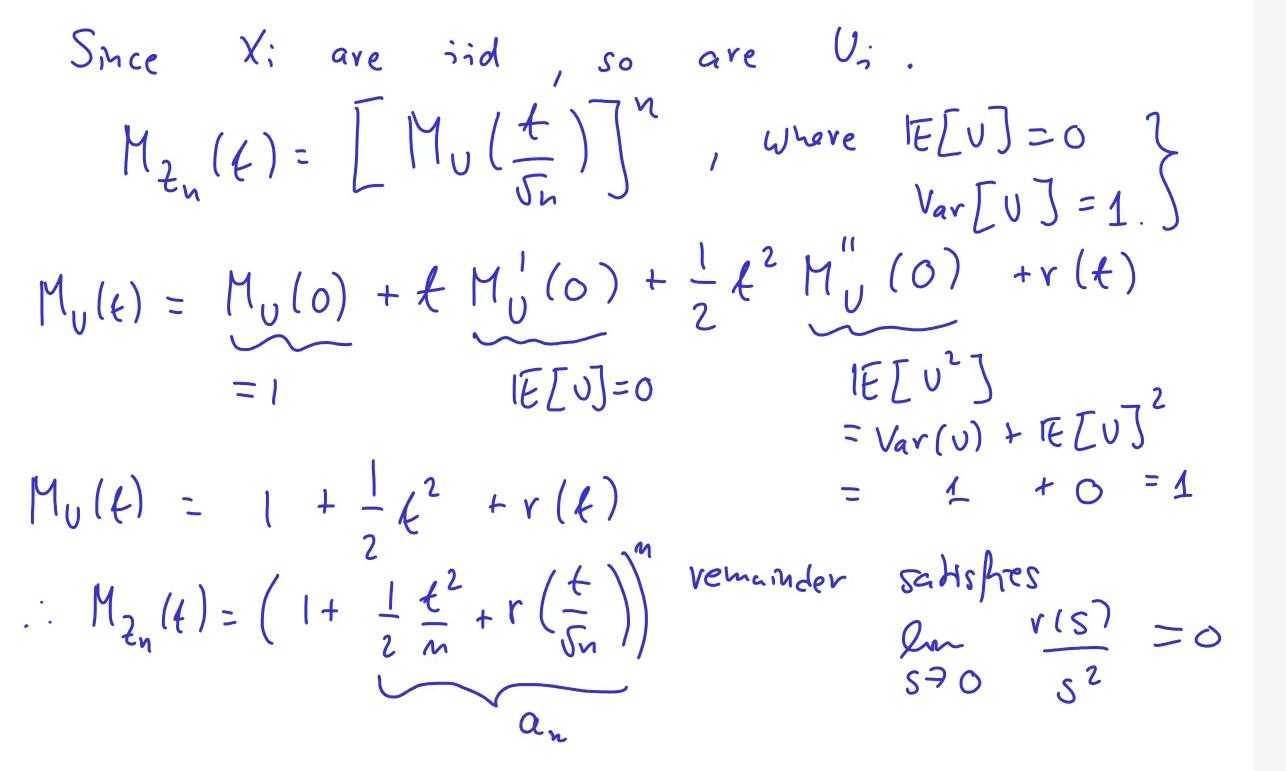 Since Xᵢ are iid, so are Uᵢ.
M_{Zₙ}(t) = [M_U(t/√n)]ⁿ, where 𝔼[U] = 0
Var[U] = 1. }
M_U(t) = M_U(0) + t M_U'(0) + 1/2 t² M_U''(0) + r(t)
= 1 𝔼[U] = 0 𝔼[U²]
= Var(U) + 𝔼[U]²
M_U(t) = 1 + 1/2 t² + r(t) = 1 + 0 = 1
∴ M_{Zₙ}(t) = (1 + 1/2 t²/n + r(t/√n))ⁿ remainder satisfies
lim_{s→0} r(s)/s² = 0
aₙ